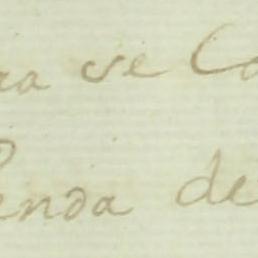 ra se Co
enda de